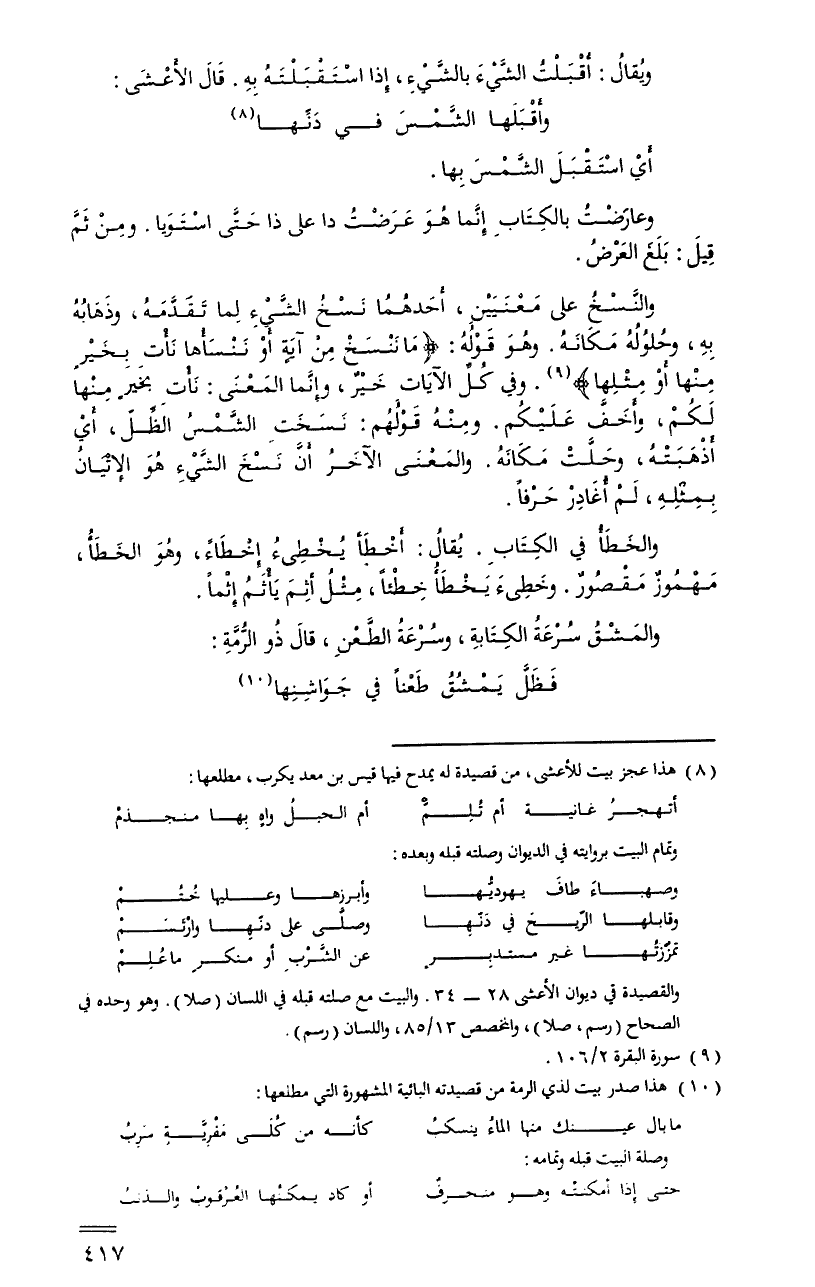 ويُقالُ : أَقْبَلْتُ الشَّيْءَ بالشَّيْءِ ، إذا اسْتَقْبَلْتَهُ بِهِ . قَالَ الأَعْشَى :
وأَقْبَلَها الشَّمْسَ فِي دَنِّها(٨)
أَيْ اسْتَقْبَلَ الشَّمْسَ بِها .
وعارَضْتُ بالكِتَابِ إنَّما هُوَ عَرَضْتُ دا على ذا حَتَّى اسْتَويا . ومِنْ ثَمَّ
قِيلَ : بَلَغَ العَرْضُ .
والنَّسْخُ على مَعْنَيَيْنِ ، أَحَدهُمَا نَسْخُ الشَّيْءِ لِما تَقَدَّمَهُ ، وذَهَابُهُ
بِهِ ، وحُلُولُهُ مَكَانَهُ . وهُوَ قَوْلُهُ : ﴿ مَا نَنْسَخْ مِنْ آيَةٍ أَوْ نَنْسَأْها نَأْتِ بِخَيْرٍ
مِنْها أَوْ مِثْلِها ﴾(٩) . وفي كُلِّ الآيَاتِ خَيْرٌ ، وإنَّما المَعْنَى : نَأْتِ بخَيْرٍ مِنْها
لَكُمْ ، وأَخَفَّ عَلَيْكُم . ومِنْهُ قَوْلُهُم : نَسَخَتِ الشَّمْسُ الظِّلَّ ، أَيْ
أَذْهَبَتْهُ ، وحَلَّتْ مَكَانَهُ . والمَعْنَى الآخَرُ أَنَّ نَسْخَ الشَّيْءِ هُوَ الإتْيَانُ
بِمِثْلِهِ ، لَمْ أُغَادِرْ حَرْفاً .
والخَطَأُ في الكِتَابِ . يُقالُ : أَخْطَأَ يُخْطِيءُ إخْطَاءً ، وهُوَ الخَطَأُ ،
مَهْمُوزٌ مَقْصُورٌ . وخَطِيءَ يَخْطَأُ خِطْئاً ، مِثْلُ أَثِمَ يَأْثَمُ إثْماً .
والمَشْقُ سُرْعَةُ الكِتَابةِ ، وسُرْعَةُ الطَّعْنِ ، قالَ ذُو الرُّمَّةِ :
فَظَلَّ يَمْشُقُ طَعْناً في جَوَاشِنِها(١٠)
(٨) هذا عجز بيت للأعشى ، من قصيدة له يمدح فيها قيس بن معد يكرب ، مطلعها :
أتهجرُ غانية أم تُلِمّْ أم الحبلُ واهٍ بها منجذمْ
وتمام البيت بروايته في الديوان وصلته قبله وبعده :
وصهباءَ طافَ يهوديُّها وأبرزها وعليها خُتُمْ
وقابلها الرّيحَ في دَنّها وصلَّى على دنّها وارْتَسَمْ
تمزّزتُها غير مستدبرٍ عن الشَّرْبِ أو منكرٍ ما عُلِمْ
والقصيدة في ديوان الأعشى ٢٨ ــ ٣٤ . والبيت مع صلته قبله في اللسان ( صلا ) . وهو وحده في
الصحاح ( رسم ، صلا ) ، والمخصص ٨٥/١٣ ، واللسان ( رسم ) .
(٩) سورة البقرة ١٠٦/٢ .
(١٠) هذا صدر بيت لذي الرمة من قصيدته البائية المشهورة التي مطلعها :
ما بال عينك منها الماءُ ينسكبُ كأنه من كُلَى مَفْرِيَّةٍ سَرِبُ
وصلة البيت قبله وتمامه :
حتى إذا أمكنتْه وهو منحرفٌ أو كاد يمكنُها العُرْقوبُ والذنبُ
٤١٧